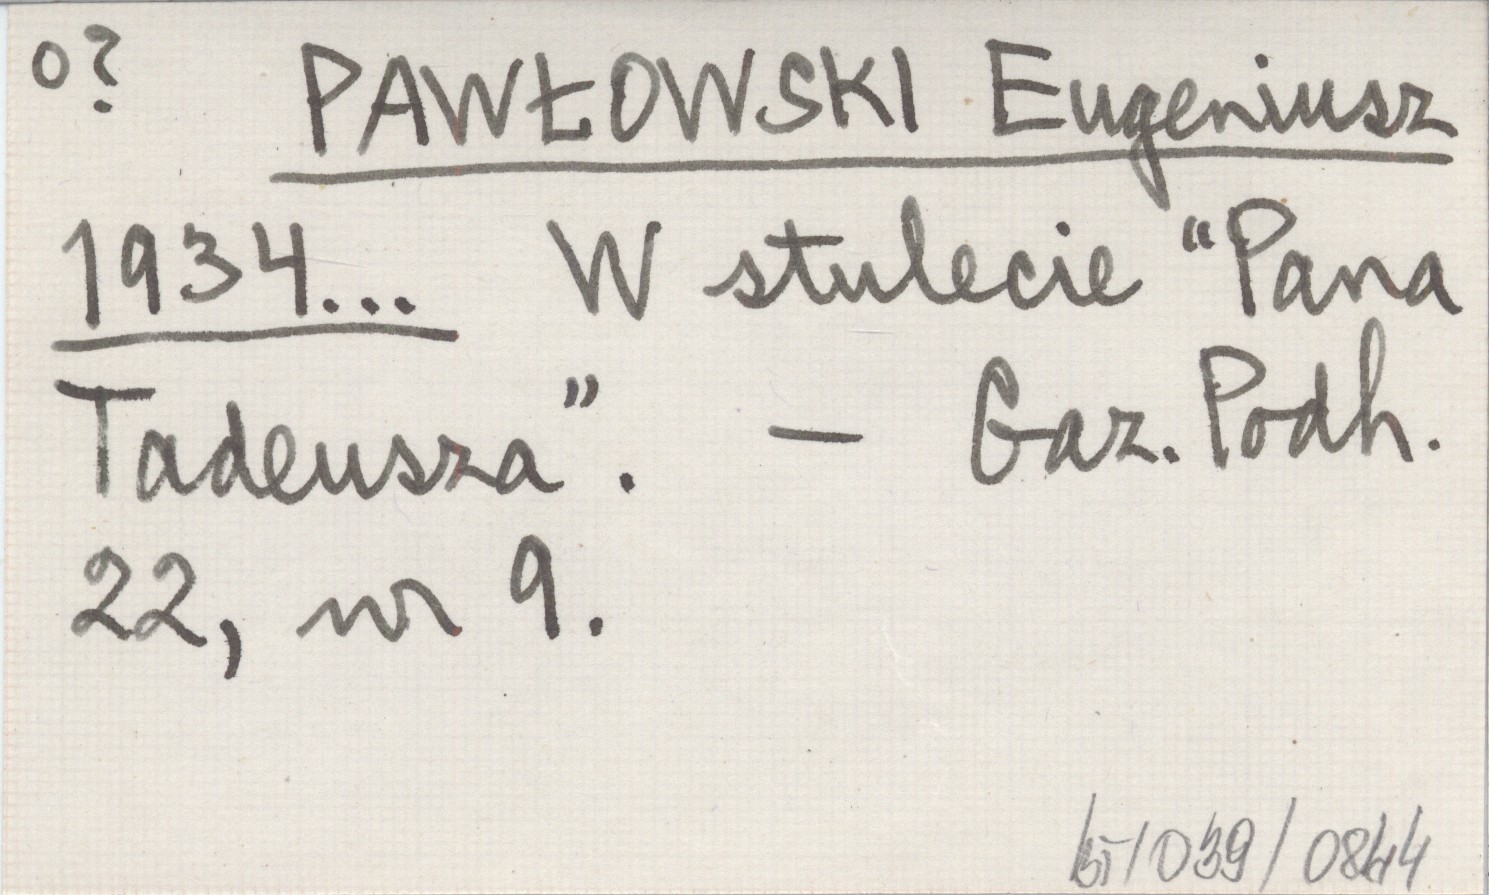 o? PAWŁOWSKI Eugeniusz
1934... W stulecie “Pana
Tadeusza”. — Gaz. Podh.
22, nr 9.
/039/0844